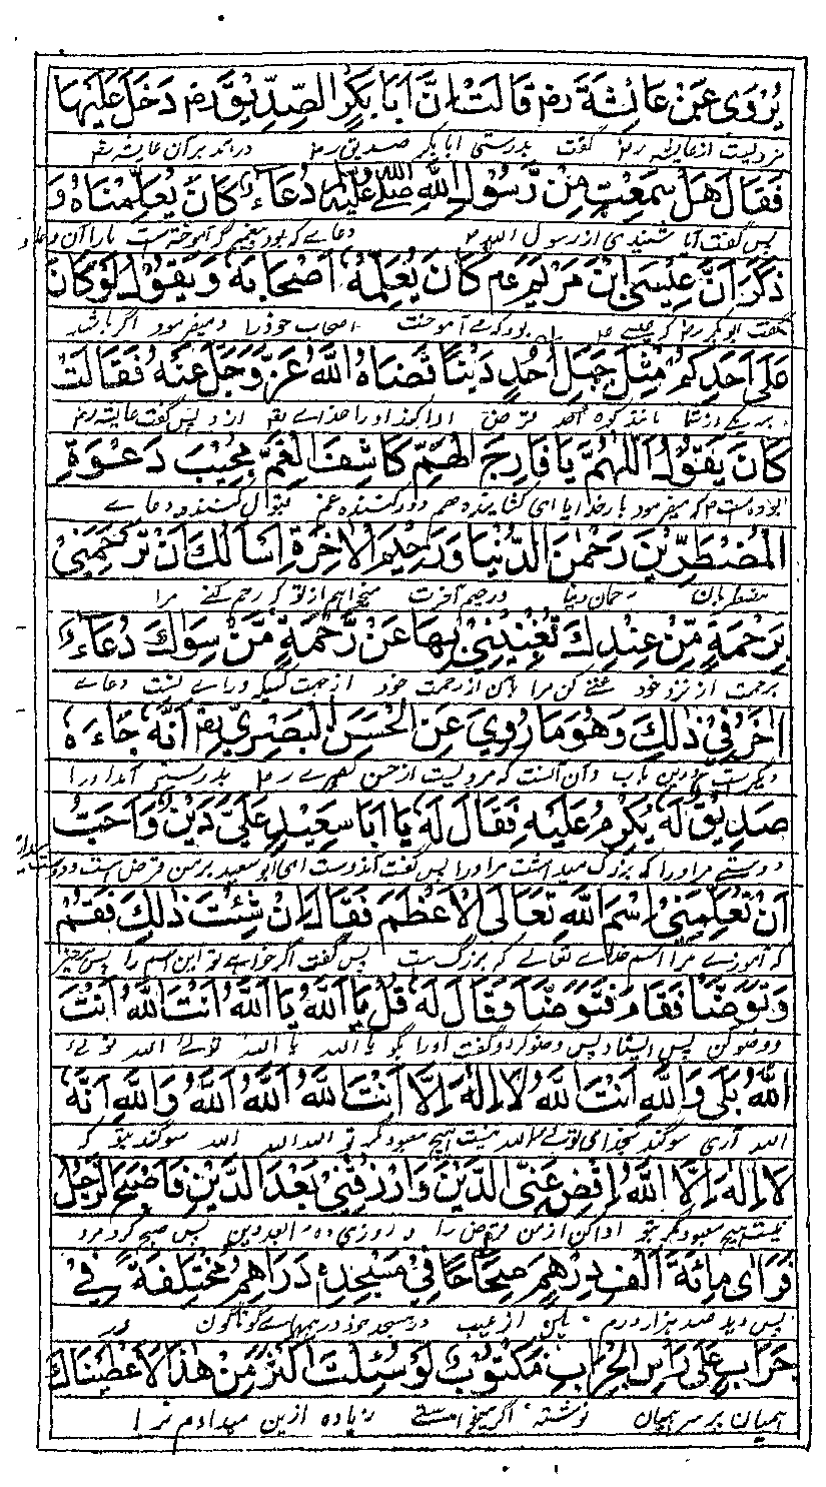 يُرْوٰى عَنْ عَائِشَةَ رضـ قَالَتْ اِنَّ اَبَا بَكْرٍ الصِّدِّيْقَ رضـ دَخَلَ عَلَيْهَا
مرویست از عایشه رضـ گفت بدرستی ابا بکر صدیق رضـ درآمد بر آن عایشه رضـ
فَقَالَ هَلْ سَمِعْتِ مِنْ رَّسُوْلِ اللّٰهِ صَلَّى اللّٰهُ عَلَيْهِ وَسَلَّمَ دُعَاءً كَانَ يُعَلِّمُنَاهُ وَ
پس گفت آیا شنیدی از رسول الله دعائے که بود پیغمبر که آموخته است ما را آن دعا و
ذَكَرَ اَنَّ عِيْسَى ابْنَ مَرْيَمَ عم كَانَ يُعَلِّمُهٗ اَصْحَابَهٗ وَيَقُوْلُ لَوْ كَانَ
گفت ابو بکر رضـ که عیسے بود که می آموخت اصحاب خود را و میفرمود اگر باشد
عَلٰى اَحَدِكُمْ مِثْلُ جَبَلِ اُحُدٍ دَيْنًا قَضَاهُ اللّٰهُ عَزَّ وَجَلَّ عَنْهُ فَقَالَتْ
بر یکے از شما مانند کوه احد قرض ادا کند او را خدائے از و پس گفت عایشه رضـ
كَانَ يَقُوْلُ اَللّٰهُمَّ يَا فَارِجَ الْهَمِّ كَاشِفَ الْغَمِّ مُجِيْبَ دَعْوَةِ
بوده است که میفرمود بار خدایا ای کشاینده هم دور کننده غم قبول کننده دعائے
الْمُضْطَرِّيْنَ رَحْمٰنَ الدُّنْيَا وَرَحِيْمَ الْاٰخِرَةِ اَسْاَلُكَ اَنْ تَرْحَمَنِيْ
مضطران رحمان دنیا و رحیم آخرت میخواهم از تو که رحم کنی مرا
بِرَحْمَةٍ مِّنْ عِنْدِكَ تُغْنِيْنِيْ بِهَا عَنْ رَّحْمَةٍ مَّنْ سِوَاكَ دُعَاءٌ
برحمت از نزد خود غنے کن مرا بآن از رحمت خود از رحمت کسیکه ورائے تست دعائے
اٰخَرُ فِيْ ذٰلِكَ وَهُوَ مَا رُوِيَ عَنِ الْحَسَنِ الْبَصْرِيِّ رضـ اَنَّهٗ جَاءَهٗ
دیگر است درین باب و آن آنست که مرویست از حسن بصرے رضـ بدرستی آمد او را
صَدِيْقٌ لَهٗ يُكْرِمُ عَلَيْهِ فَقَالَ لَهٗ يَا اَبَا سَعِيْدٍ عَلَيَّ دَيْنٌ وَاُحِبُّ
دوستے مر او را که بزرگ میداشت مر او را پس گفت آن دوست ای ابو سعید بر من قرض است و دوست میدارم
اَنْ تُعَلِّمَنِيْ اِسْمَ اللّٰهِ تَعَالَى الْاَعْظَمَ فَقَالَ اِنْ شِئْتَ ذٰلِكَ فَقُمْ
که آموزے مرا اسم خدائے تعالے که بزرگ است پس گفت اگر خواهے تو این اسم را پس برخیز
وَتَوَضَّأْ فَقَامَ فَتَوَضَّأَ فَقَالَ لَهٗ قُلْ يَا اَللّٰهُ يَا اَللّٰهُ اَنْتَ اللّٰهُ اَنْتَ
و وضو کن پس ایستاد پس وضو کرد و گفت او را بگو یا الله یا الله توئی الله توئی
اللّٰهُ بَلٰى وَاللّٰهِ اَنْتَ اللّٰهُ لَا اِلٰهَ اِلَّا اَنْتَ اللّٰهُ اَللّٰهُ اَللّٰهُ وَاللّٰهِ اِنَّهٗ
الله آری سوگند بخدا می توئے الله نیست هیچ معبود مگر تو الله الله الله سوگند که
لَا اِلٰهَ اِلَّا اللّٰهُ اِقْضِ عَنِّيَ الدَّيْنَ وَارْزُقْنِيْ بَعْدَ الدَّيْنِ فَاَصْبَحَ الرَّجُلُ
نیست هیچ معبود مگر تو ادا کن از من قرض را و روزی ده بعد دین پس صبح کرد مرد
فَرَاٰى مِائَةَ اَلْفِ دِرْهَمٍ صِحَاحًا فِيْ مَسْجِدِهٖ دَرَاهِمُ مُخْتَلِفَةٌ فِيْ
پس دید صد هزار درم از عیب در مسجد خود درمهائے گوناگون در
جِرَابٍ عَلٰى رَأْسِ الْجِرَابِ مَكْتُوْبٌ لَوْ سُئِلْتَ اَكْثَرَ مِنْ هٰذَا لَاَعْطَيْنَاكَ
همیان بر سر همیان نوشته اگر میخواستے زیاده ازین میدادم ترا